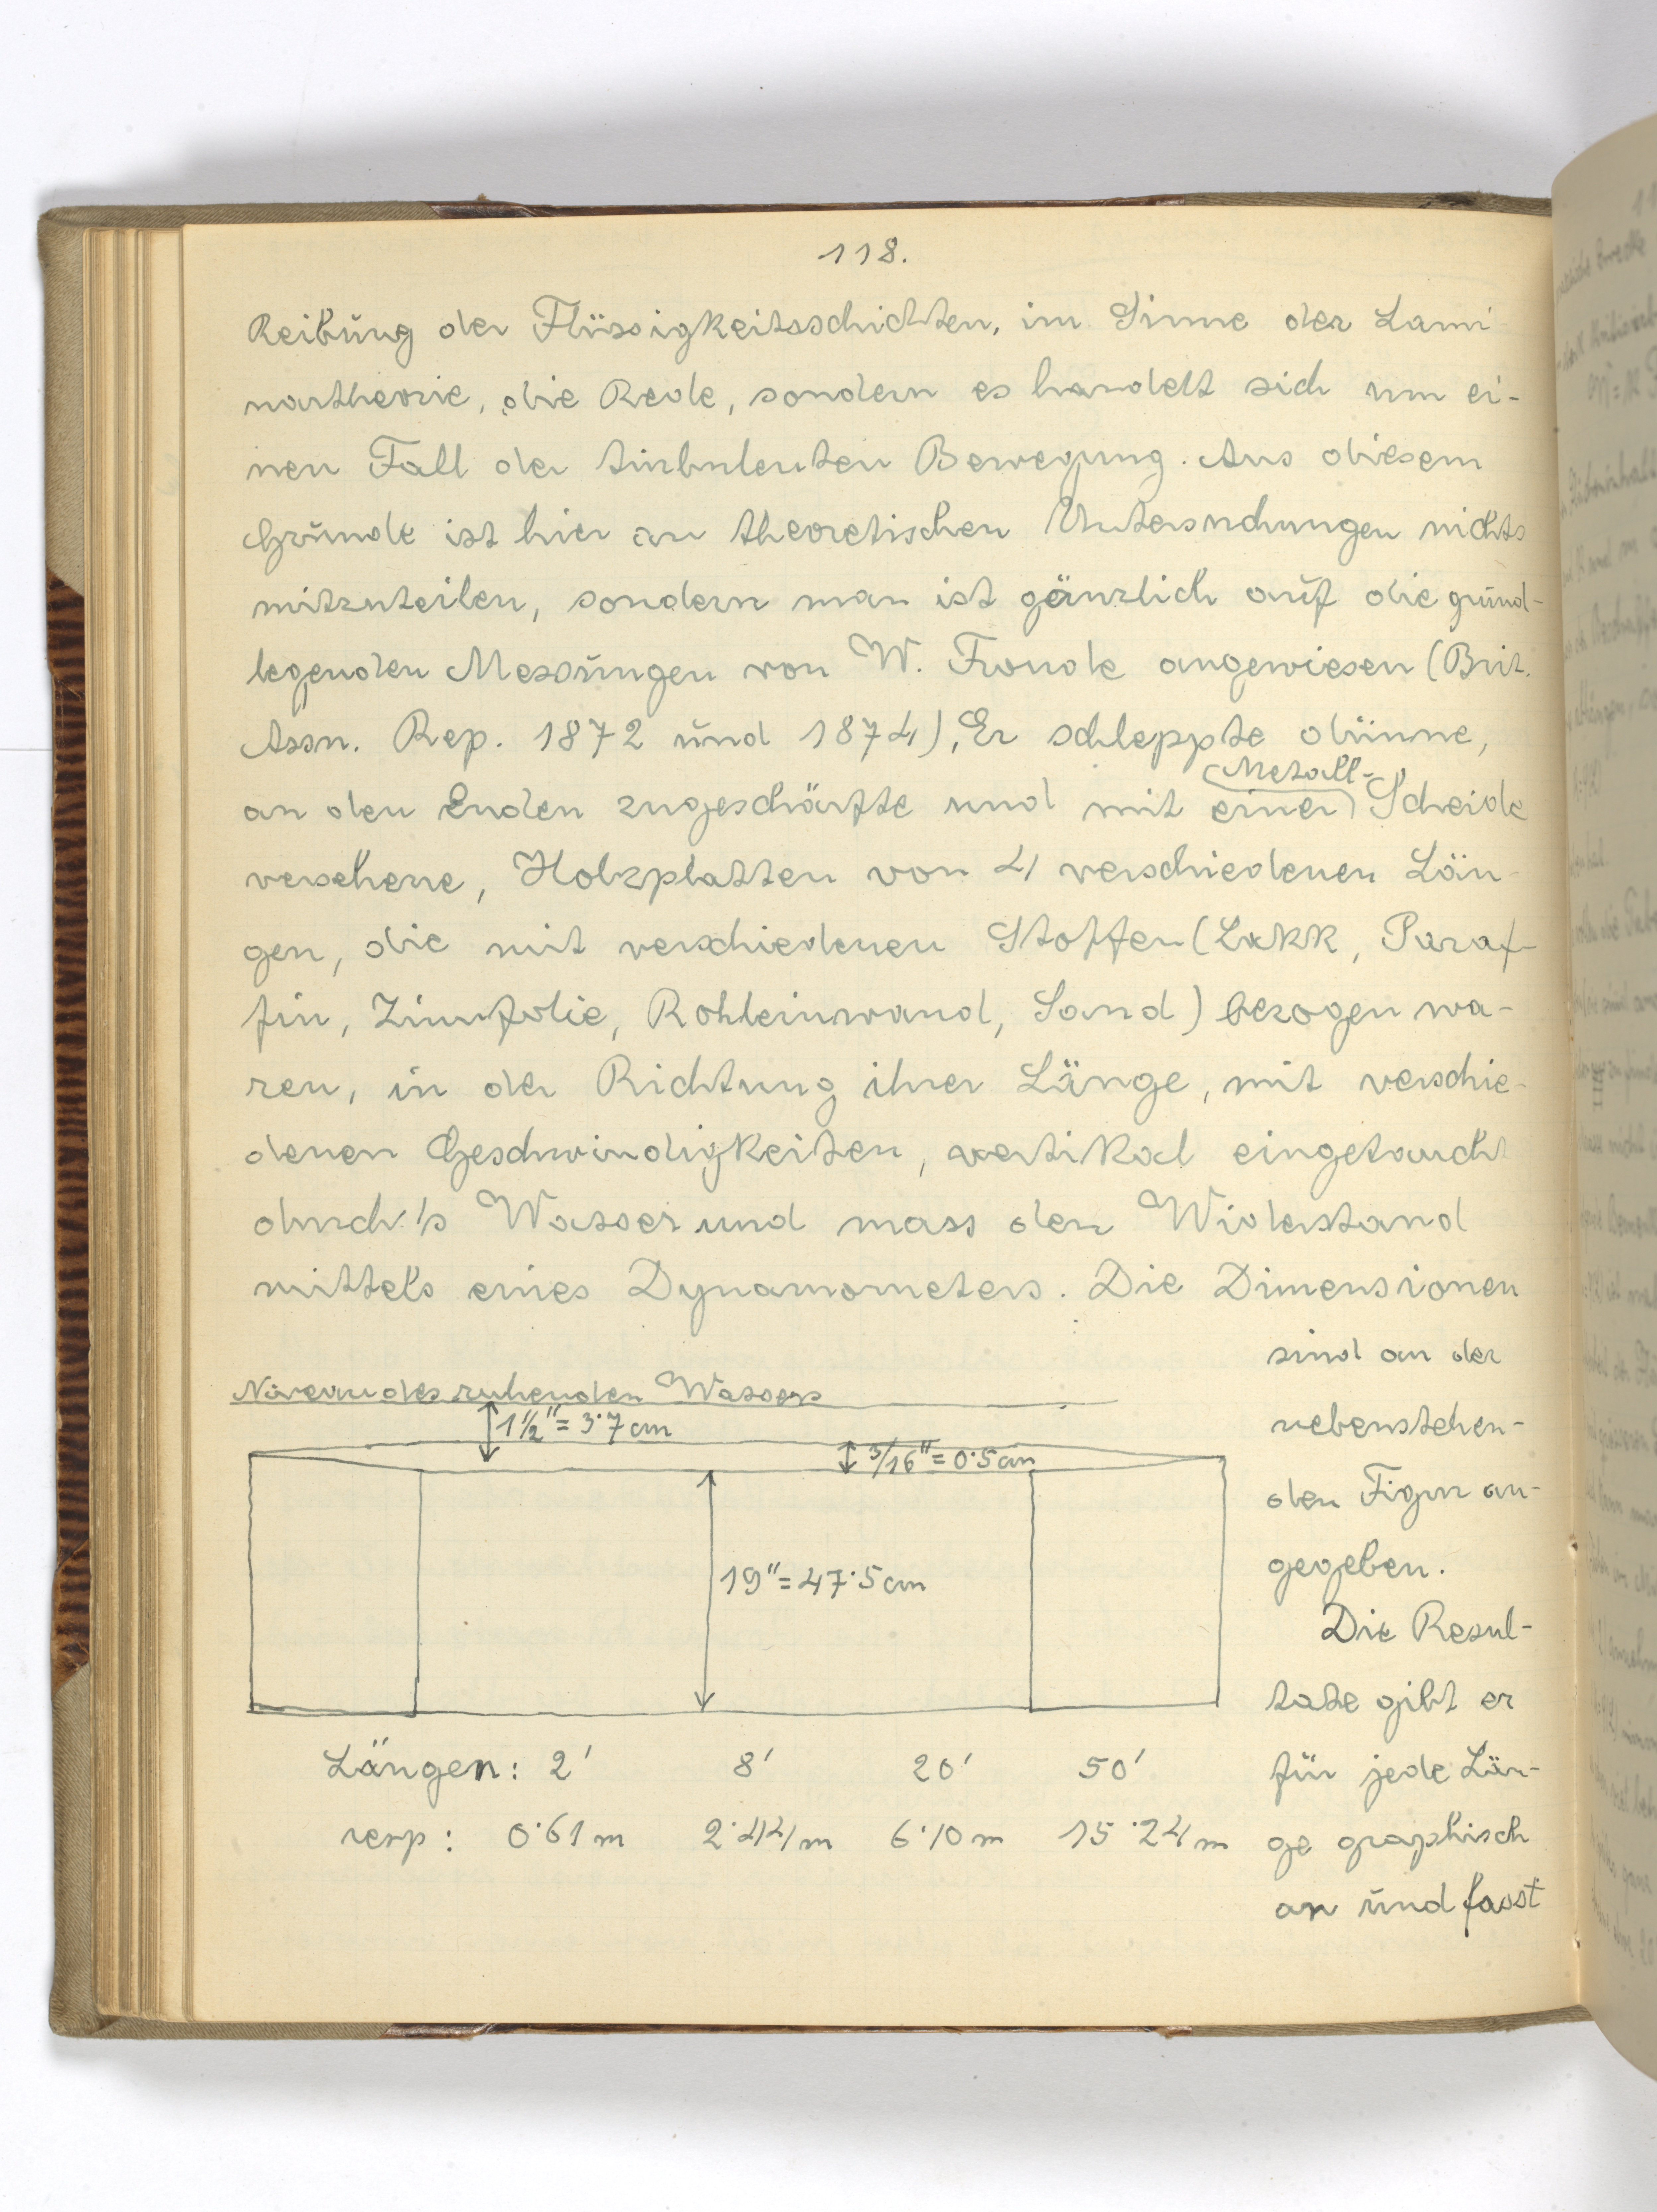 118.
Reibung der Flüssigkeitsschichten, im Sinne der Lami-
nartheorie, die Rede, sondern es handelt sich um ei-
nen Fall der turbulenten Bewegung. Aus diesem
Grunde ist hier an theoretischen Untersuchungen nichts
mitzuteilen, sondern man ist gänzlich auf die grund-
legenden Messungen von W. Froude angewiesen (Brit.
Assn. Rep. 1872 und 1874), Er schleppte dünne,
Metall-
an den Enden zugeschärfte und mit einer Scheide
versehene, Holzplatten von 4 verschiedenen Län-
gen, die mit verschiedenen Stoffen (Lakk, Paraf-
fin, Zinnfolie, Rohleinwand, Sand) bezogen wa-
ren, in der Richtung ihrer Länge, mit verschie-
denen Geschwindigkeiten, vertikal eingetaucht
durch's Wasser und mass den Widerstand
mittels eines Dynamometers. Die Dimensionen
sind an der
nebenstehen-
den Figur an-
gegeben.
Die Resul-
tate gibt er
für jede Län-
ge graphisch
an und fasst
Niveau des ruhenden Wassers
1 1/2" = 3·7 cm
3/16" = 0·5 cm
19" = 47·5 cm
Längen: 2' 8' 20' 50'
resp: 0·61 m 2·44 m 6·10 m 15·24 m